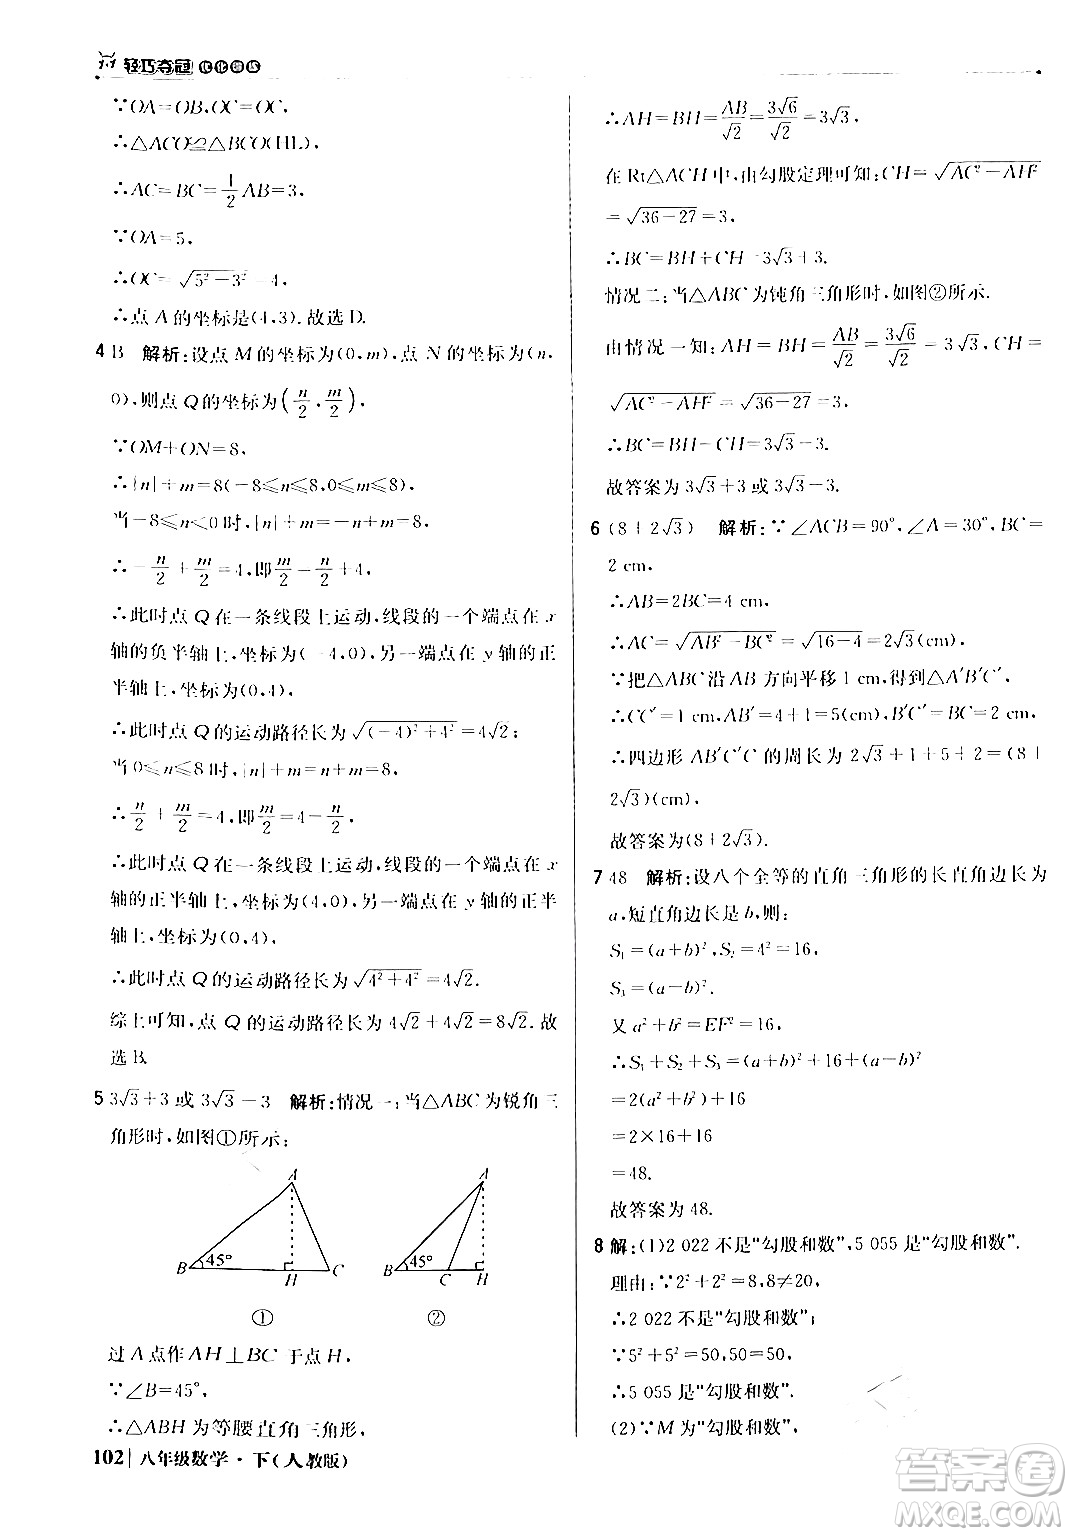 轻巧夺冠 优化训练
∵OA=OB,OC=OC,
∴△ACO≌△BCO(HL),
∴AC=BC=1/2AB=3,
∵OA=5,
∴OC=√(5²-3²)=4,
∴点A的坐标是(4,3).故选D.
4 B 解析:设点M的坐标为(0,m),点N的坐标为(n,
0),则点Q的坐标为(n/2,m/2),
∵OM+ON=8,
∴|n|+m=8(-8≤n≤8,0≤m≤8),
当-8≤n<0时,|n|+m=-n+m=8,
∴-n/2+m/2=4,即m/2=n/2+4,
∴此时点Q在一条线段上运动,线段的一个端点在x
轴的负半轴上,坐标为(-4,0),另一端点在y轴的正
半轴上,坐标为(0,4),
∴此时点Q的运动路径长为√((-4)²+4²)=4√2;
当0≤n≤8时,|n|+m=n+m=8,
∴n/2+m/2=4,即m/2=4-n/2,
∴此时点Q在一条线段上运动,线段的一个端点在x
轴的正半轴上,坐标为(4,0),另一端点在y轴的正半
轴上,坐标为(0,4),
∴此时点Q的运动路径长为√(4²+4²)=4√2.
综上可知,点Q的运动路径长为4√2+4√2=8√2.故
选B.
5 3√3+3或3√3-3 解析:情况一:当△ABC为锐角三
角形时,如图①所示:
A
B 45° H C
①
A
B 45° C H
②
过A点作AH⊥BC于点H,
∵∠B=45°,
∴△ABH为等腰直角三角形,
102 八年级数学·下(人教版)
∴AH=BH=AB/√2=3√6/√2=3√3,
在Rt△ACH中,由勾股定理可知:CH=√(AC²-AH²)
=√(36-27)=3,
∴BC=BH+CH=3√3+3.
情况二:当△ABC为钝角三角形时,如图②所示.
由情况一知:AH=BH=AB/√2=3√6/√2=3√3,CH=
√(AC²-AH²)=√(36-27)=3,
∴BC=BH-CH=3√3-3.
故答案为3√3+3或3√3-3.
6 (8+2√3) 解析:∵∠ACB=90°,∠A=30°,BC=
2 cm,
∴AB=2BC=4 cm,
∴AC=√(AB²-BC²)=√(16-4)=2√3(cm),
∵把△ABC沿AB方向平移1 cm,得到△A′B′C′,
∴CC′=1 cm,AB′=4+1=5(cm),B′C′=BC=2 cm,
∴四边形AB′C′C的周长为2√3+1+5+2=(8+
2√3)(cm),
故答案为(8+2√3).
7 48 解析:设八个全等的直角三角形的长直角边长为
a,短直角边长是b,则:
S₁=(a+b)²,S₂=4²=16,
S₃=(a-b)².
又a²+b²=EF²=16,
∴S₁+S₂+S₃=(a+b)²+16+(a-b)²
=2(a²+b²)+16
=2×16+16
=48.
故答案为48.
8 解:(1)2 022不是“勾股和数”,5 055是“勾股和数”.
理由:∵2²+2²=8,8≠20,
∴2 022不是“勾股和数”;
∵5²+5²=50,50=50,
∴5 055是“勾股和数”.
(2)∵M为“勾股和数”,
答案圈
MXQE.COM